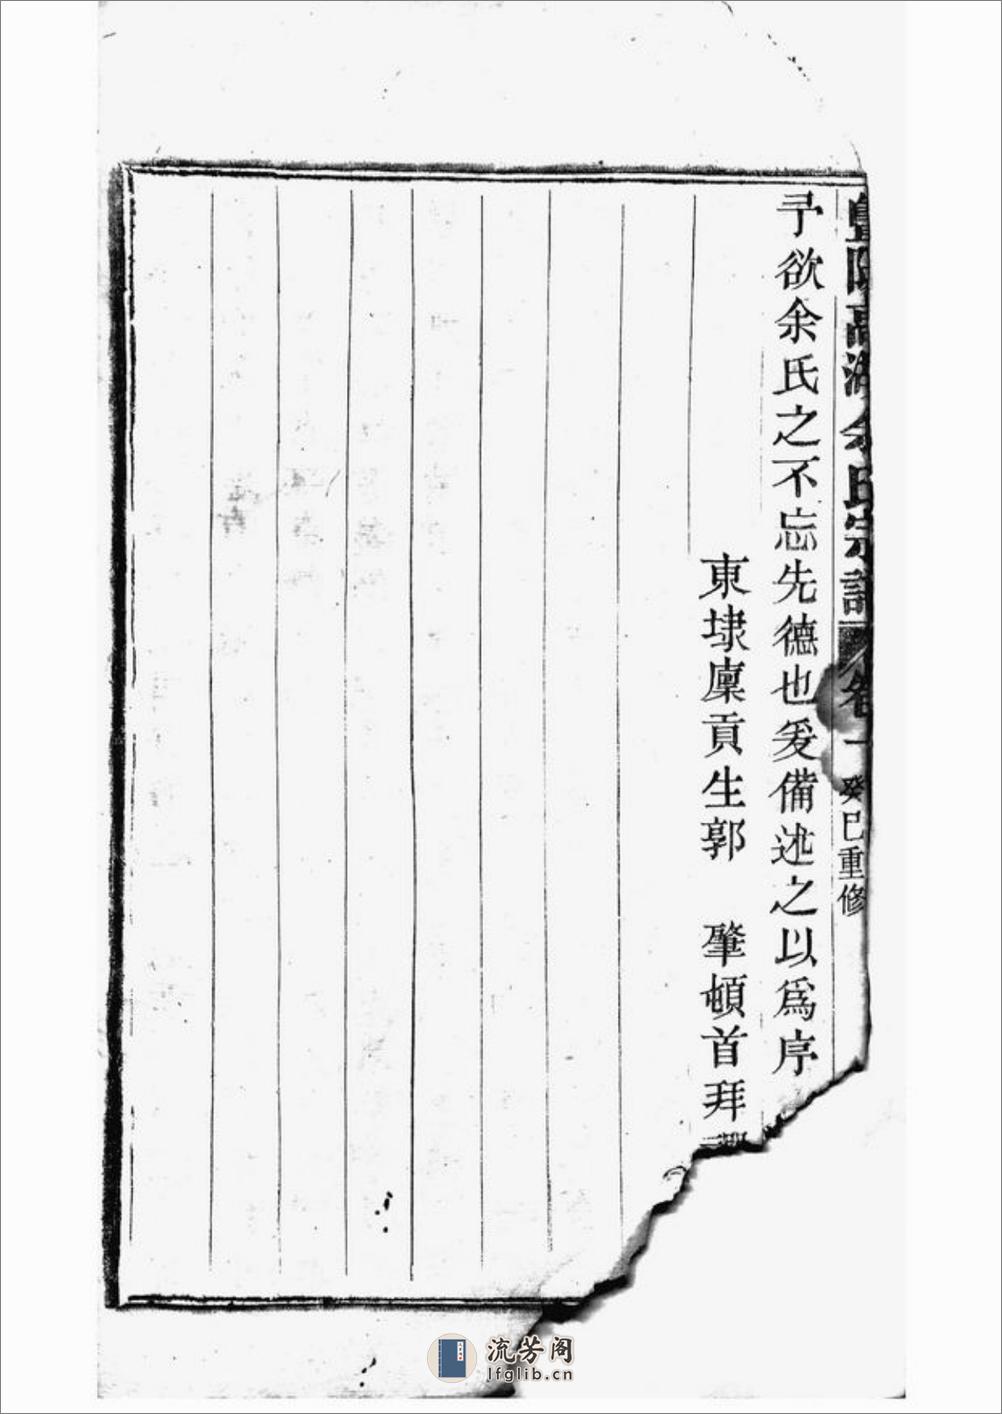 暨陽高湖余氏宗譜 卷一 癸巳重修
予欲余氏之不忘先德也爰備述之以爲序
東埭廩貢生郭 肇頓首拜
流芳阁
lfglib.cn